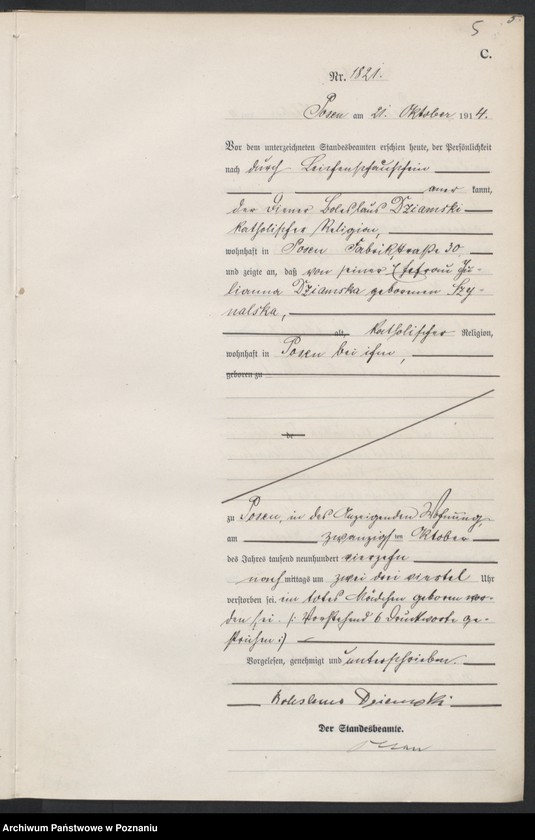 5
5
C.
Nr. 1821.
Posen am 21. Oktober 1914.
Vor dem unterzeichneten Standesbeamten erschien heute, der Persönlichkeit
nach durch Leichenschauschein
aner kannt,
der Diener Boleslaus Dziamski
katholischer Religion,
wohnhaft in Posen Fabrikstraße 30
und zeigte an, daß von seiner Ehefrau Ju-
lianna Dziamska geborenen Szy-
nalska,
alt, katholischer Religion,
wohnhaft in Posen bei ihm,
geboren zu
de
zu Posen, in des Anzeigenden Wohnung,
am zwanzigsten Oktober
des Jahres tausend neunhundert vierzehn
nachmittags um zwei drei viertel Uhr
verstorben sei. ein totes Mädchen geboren wor-
den sei. (: Vorstehend 6 Druckworte ge-
strichen :)
Vorgelesen, genehmigt und unterschrieben.
Boleslaus Dziamski
Der Standesbeamte.
Archiwum Państwowe w Poznaniu